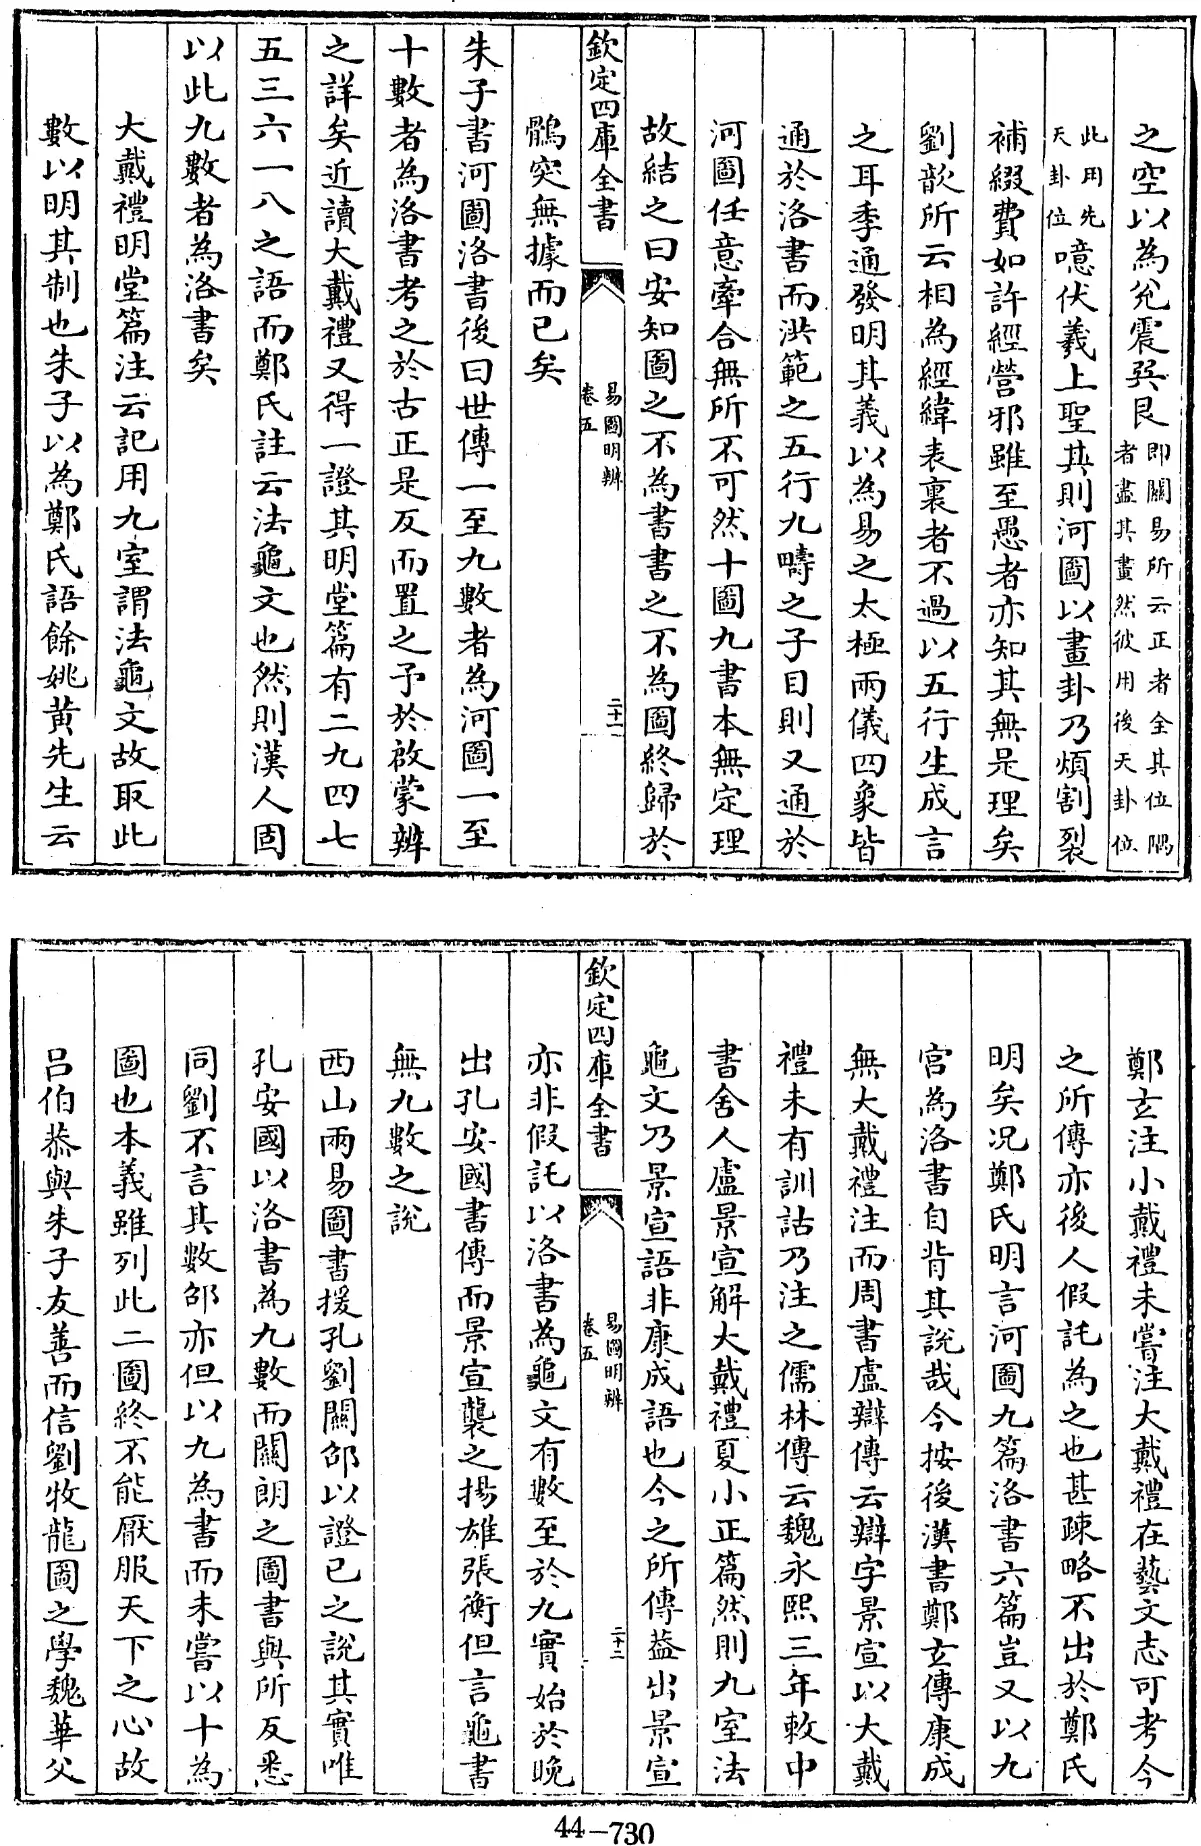 之空以為兊震巽艮即關易所云正者全其位隅者盡其畫然彼用後天卦位
此用先天卦位噫伏羲上聖其則河圖以畫卦乃煩割裂
補綴費如許經營邪雖至愚者亦知其無是理矣
劉歆所云相為經緯表裏者不過以五行生成言
之耳季通發明其義以為易之太極兩儀四象皆
通於洛書而洪範之五行九疇之子目則又通於
河圖任意牽合無所不可然十圖九書本無定理
故結之曰安知圖之不為書書之不為圖終歸於
欽定四庫全書
易圖明辨
卷五
二十一
鶻突無據而已矣
朱子書河圖洛書後曰世傳一至九數者為河圖一至
十數者為洛書考之於古正是反而置之予於啟蒙辨
之詳矣近讀大戴禮又得一證其明堂篇有二九四七
五三六一八之語而鄭氏註云法龜文也然則漢人固
以此九數者為洛書矣
大戴禮明堂篇注云記用九室謂法龜文故取此
數以明其制也朱子以為鄭氏語餘姚黄先生云
鄭玄注小戴禮未嘗注大戴禮在藝文志可考今
之所傳亦後人假託為之也甚疎略不出於鄭氏
明矣况鄭氏明言河圖九篇洛書六篇豈又以九
宫為洛書自背其說哉今按後漢書鄭玄傳康成
無大戴禮注而周書盧辯傳云辯字景宣以大戴
禮未有訓詁乃注之儒林傳云魏永熙三年敕中
書舍人盧景宣解大戴禮夏小正篇然則九室法
龜文乃景宣語非康成語也今之所傳葢出景宣
欽定四庫全書
易圖明辨
卷五
二十二
亦非假託以洛書為龜文有數至於九實始於晚
出孔安國書傳而景宣襲之揚雄張衡但言龜書
無九數之説
西山兩易圖書援孔劉關邵以證已之說其實唯
孔安國以洛書為九數而關朗之圖書與所反悉
同劉不言其數邵亦但以九為書而未嘗以十為
圖也本義雖列此二圖終不能厭服天下之心故
吕伯恭與朱子友善而信劉牧龍圖之學魏華父
44-730